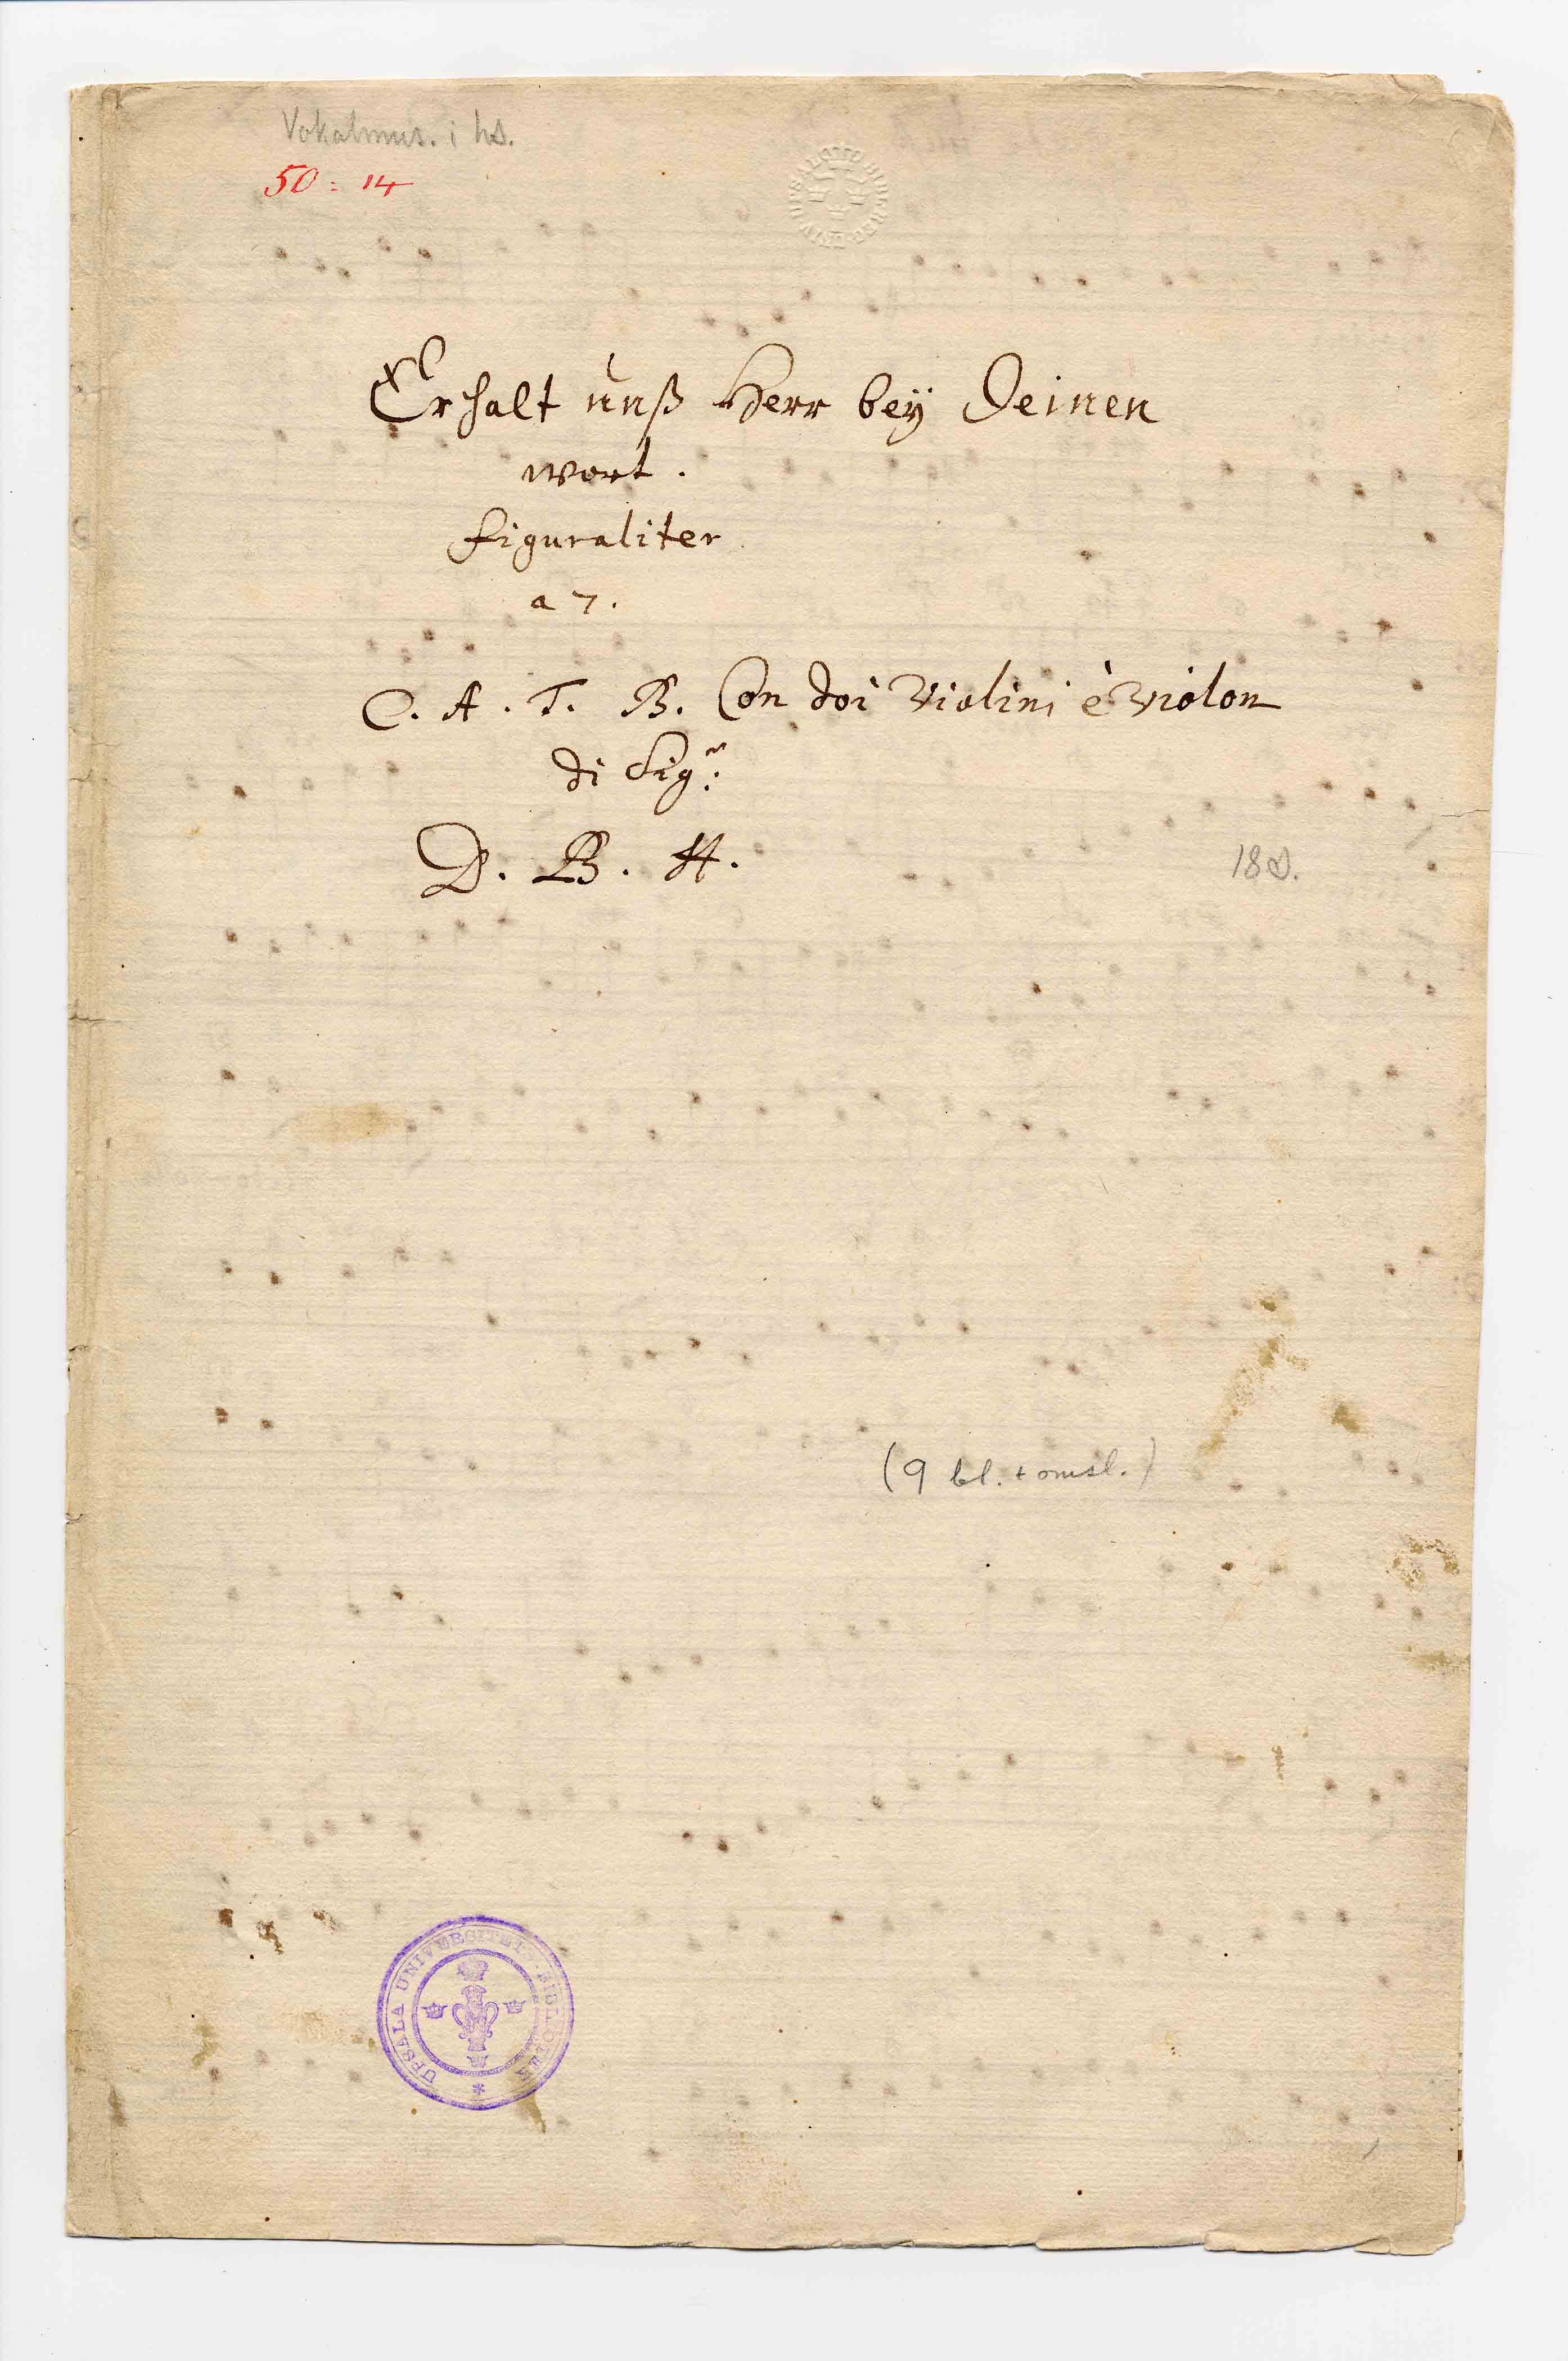 Vokalmus. i hs.
50 : 14
Erhalt unß Herr beÿ Deinen
wort.
figuraliter
a 7.
C. A. T. B. Con doi Violini è Violon
di Sig:
D. B. H.
(9 bl. + omsl.)
UPSALA UNIVERSITETS-BIBLIOTEK